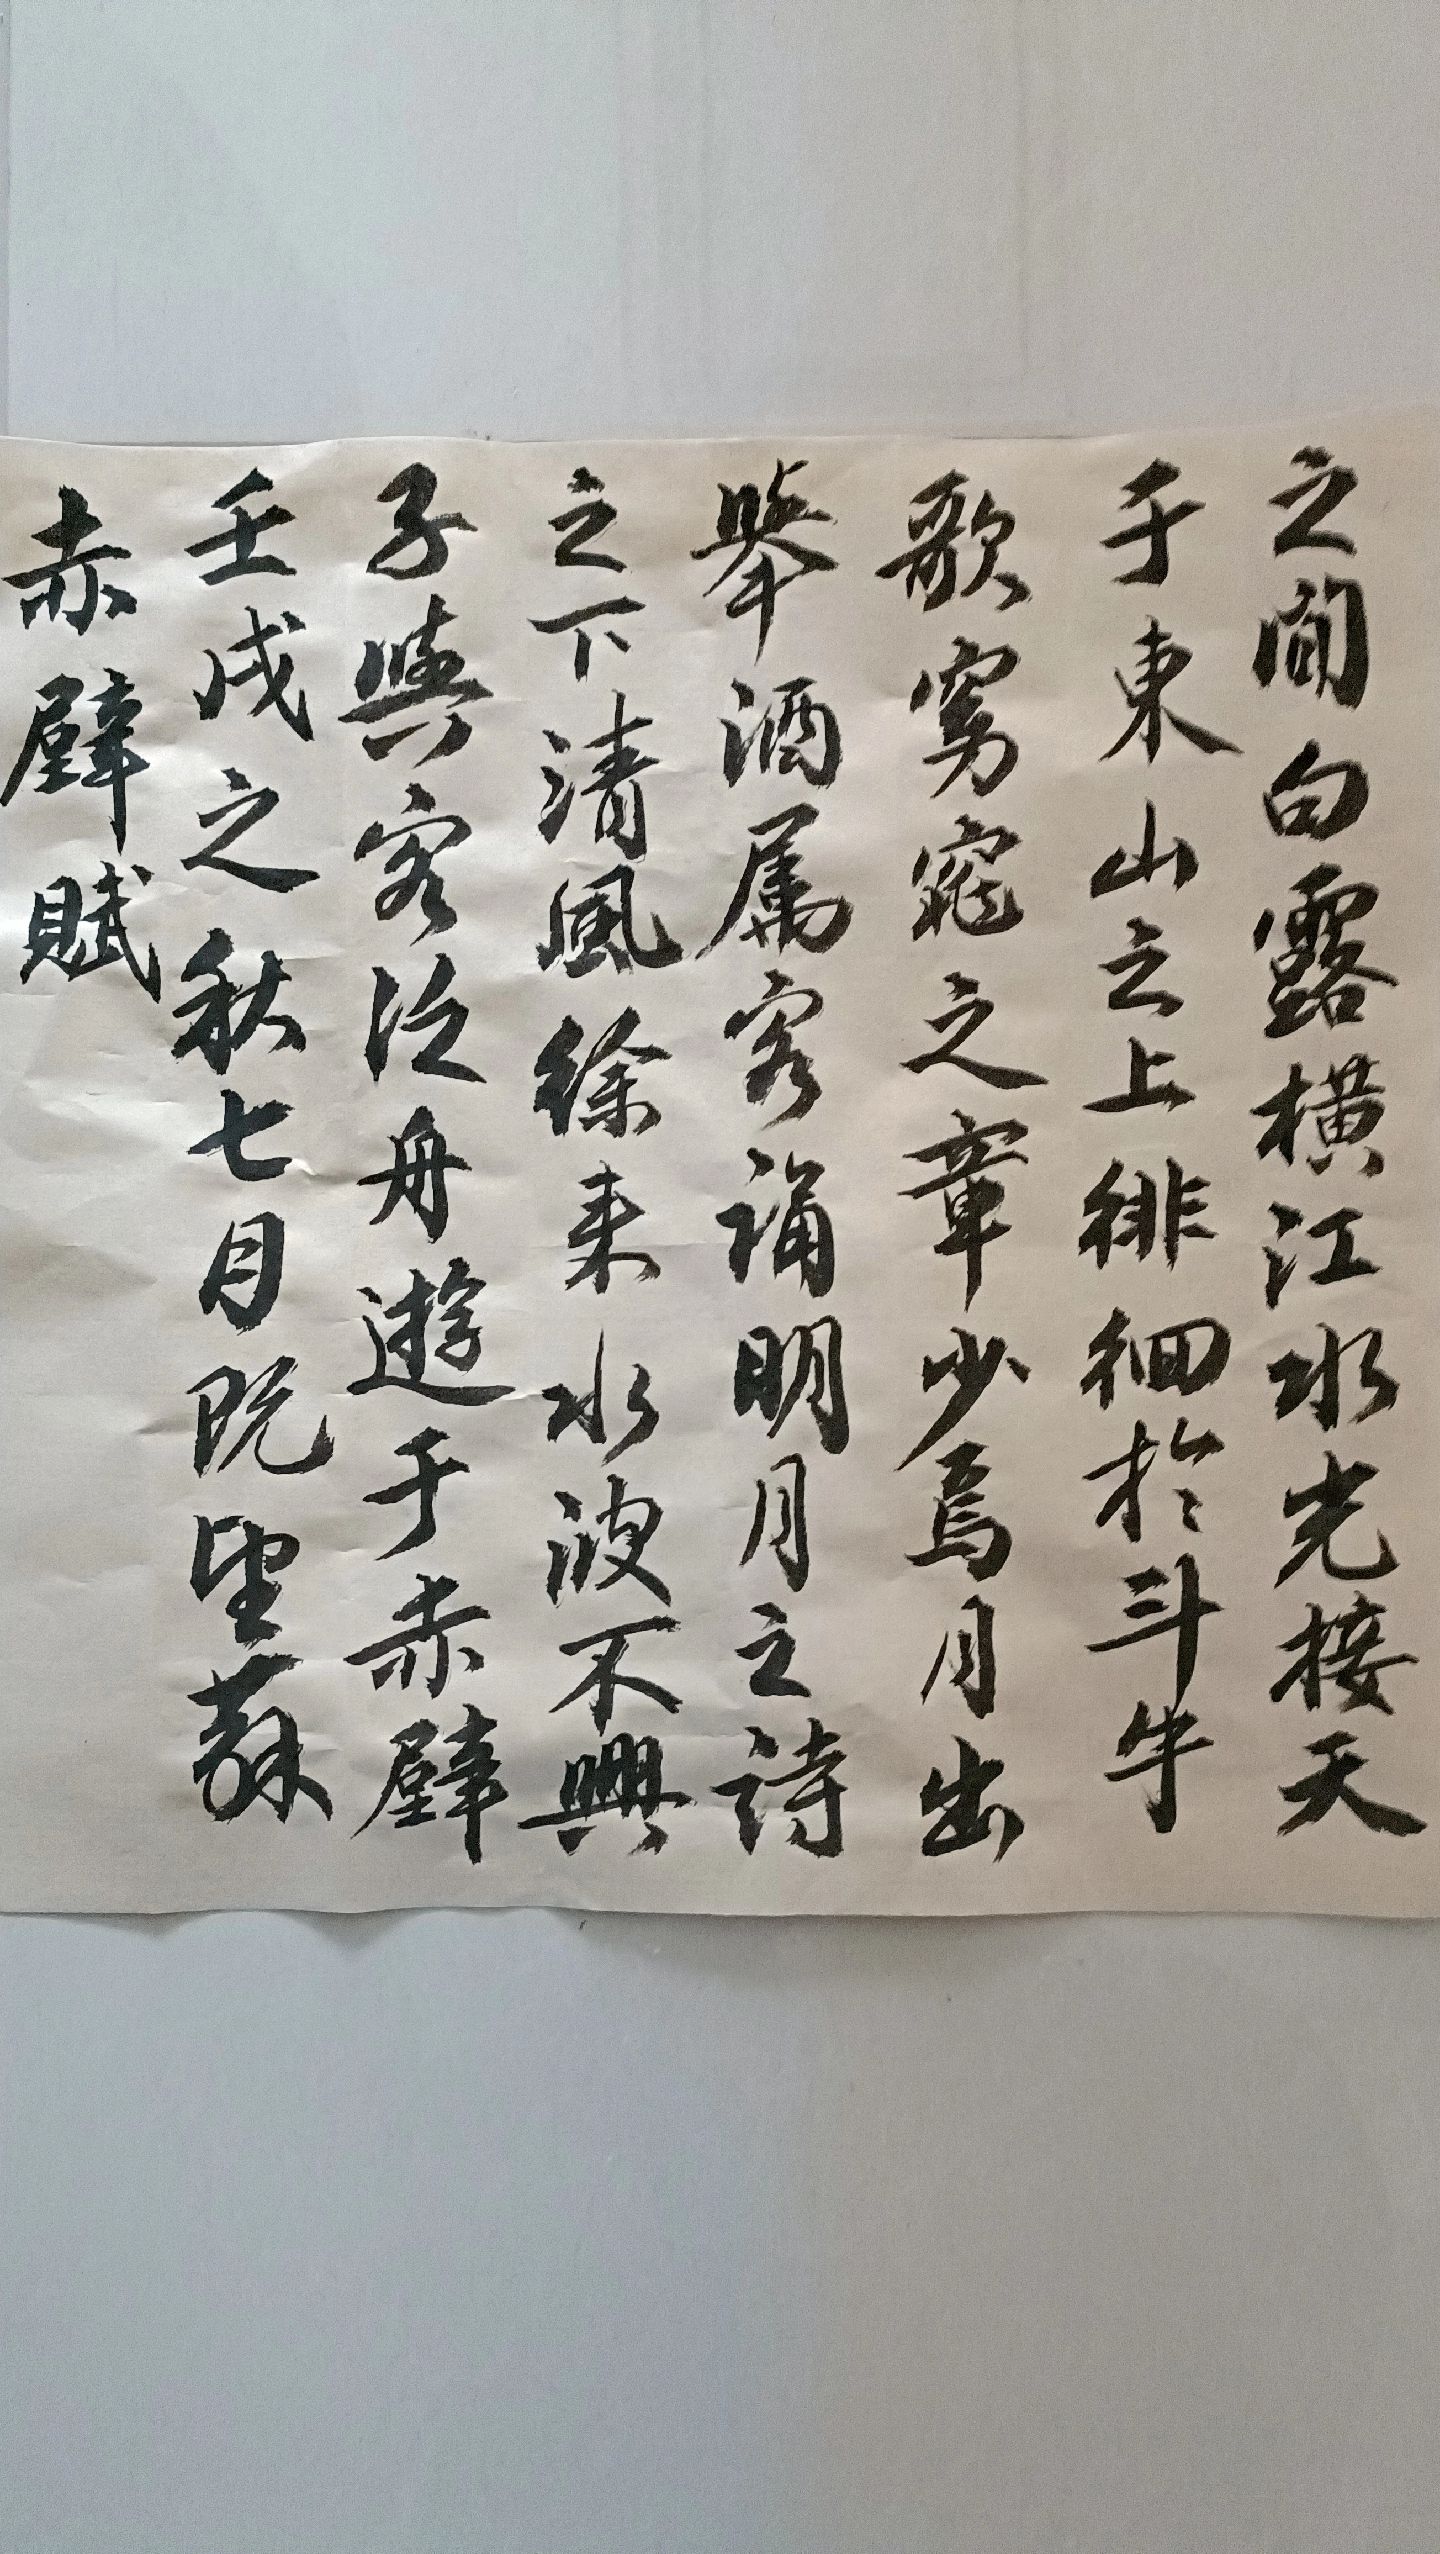 赤壁賦
壬戌之秋七月既望蘇
子與客泛舟遊于赤壁
之下清風徐来水波不興
舉酒属客誦明月之詩
歌窈窕之章少焉月出
于東山之上徘徊於斗牛
之間白露横江水光接天